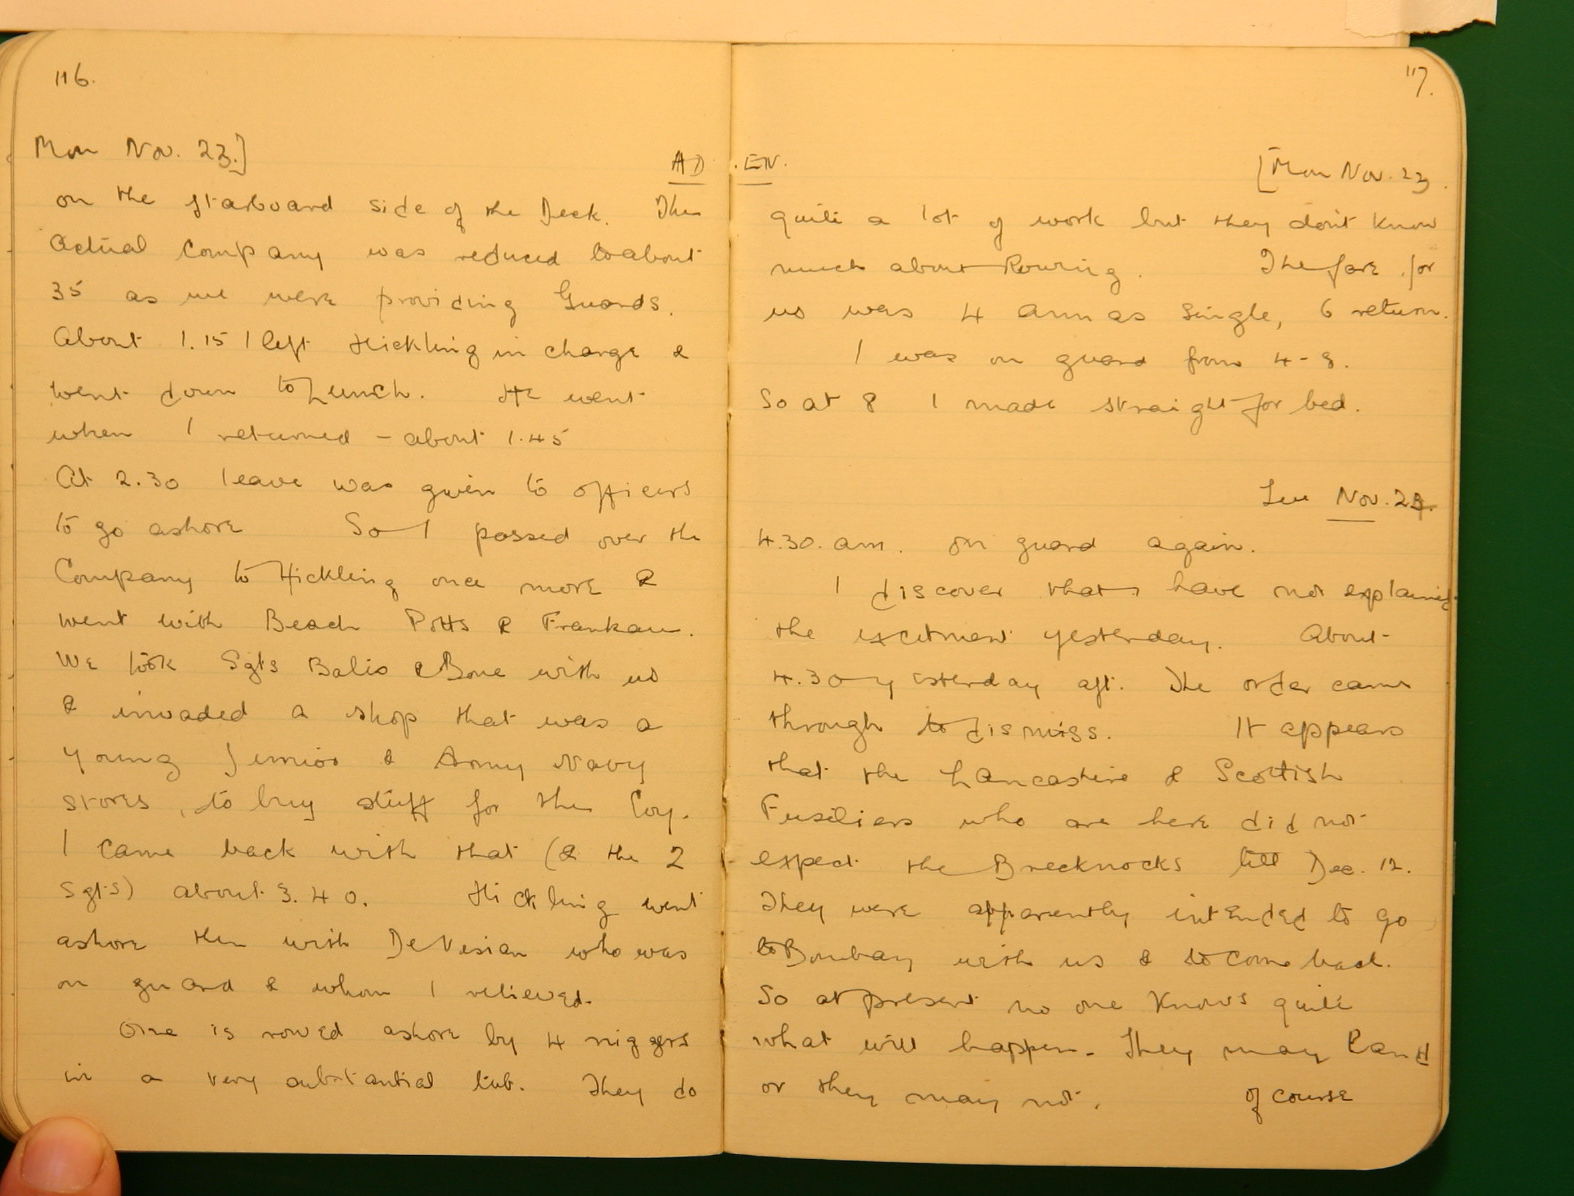 116.
Mon Nov. 23.]
AD
on the starboard side of the Deck. The
actual Company was reduced to about
35 as we were providing Guards.
About 1.15 I left Hickling in charge &
went down to Lunch. He went
when I returned – about 1.45
At 2.30 leave was given to officers
to go ashore So I passed over the
Company to Hickling once more &
went with Beach Potts & Frankau.
We took Sgts Balis & Bone with us
& invaded a shop that was a
young Junior & Army Navy
stores, to buy stuff for the Coy.
I came back with that (& the 2
Sgts) about 3.40. Hickling went
ashore then with DeVesian who was
on guard & whom I relieved.
One is rowed ashore by 4 niggers
in a very substantial tub. They do
117.
EN.
[Mon Nov. 23.
quite a lot of work but they don't know
much about Rowing. The fare for
us was 4 annas single, 6 return.
I was on guard from 4-8.
So at 8 I made straight for bed.
Tue Nov. 24.
4.30. am. on guard again.
I discover that I have not explained
the excitment yesterday. About
4.30 yesterday aft. The order came
through to dismiss. It appears
that the Lancashire & Scottish
Fusiliers who are here did not
expect the Brecknocks till Dec. 12.
They were apparently intended to go
to Bombay with us & to come back.
So at present no one knows quite
what will happen. They may land
or they may not. of course